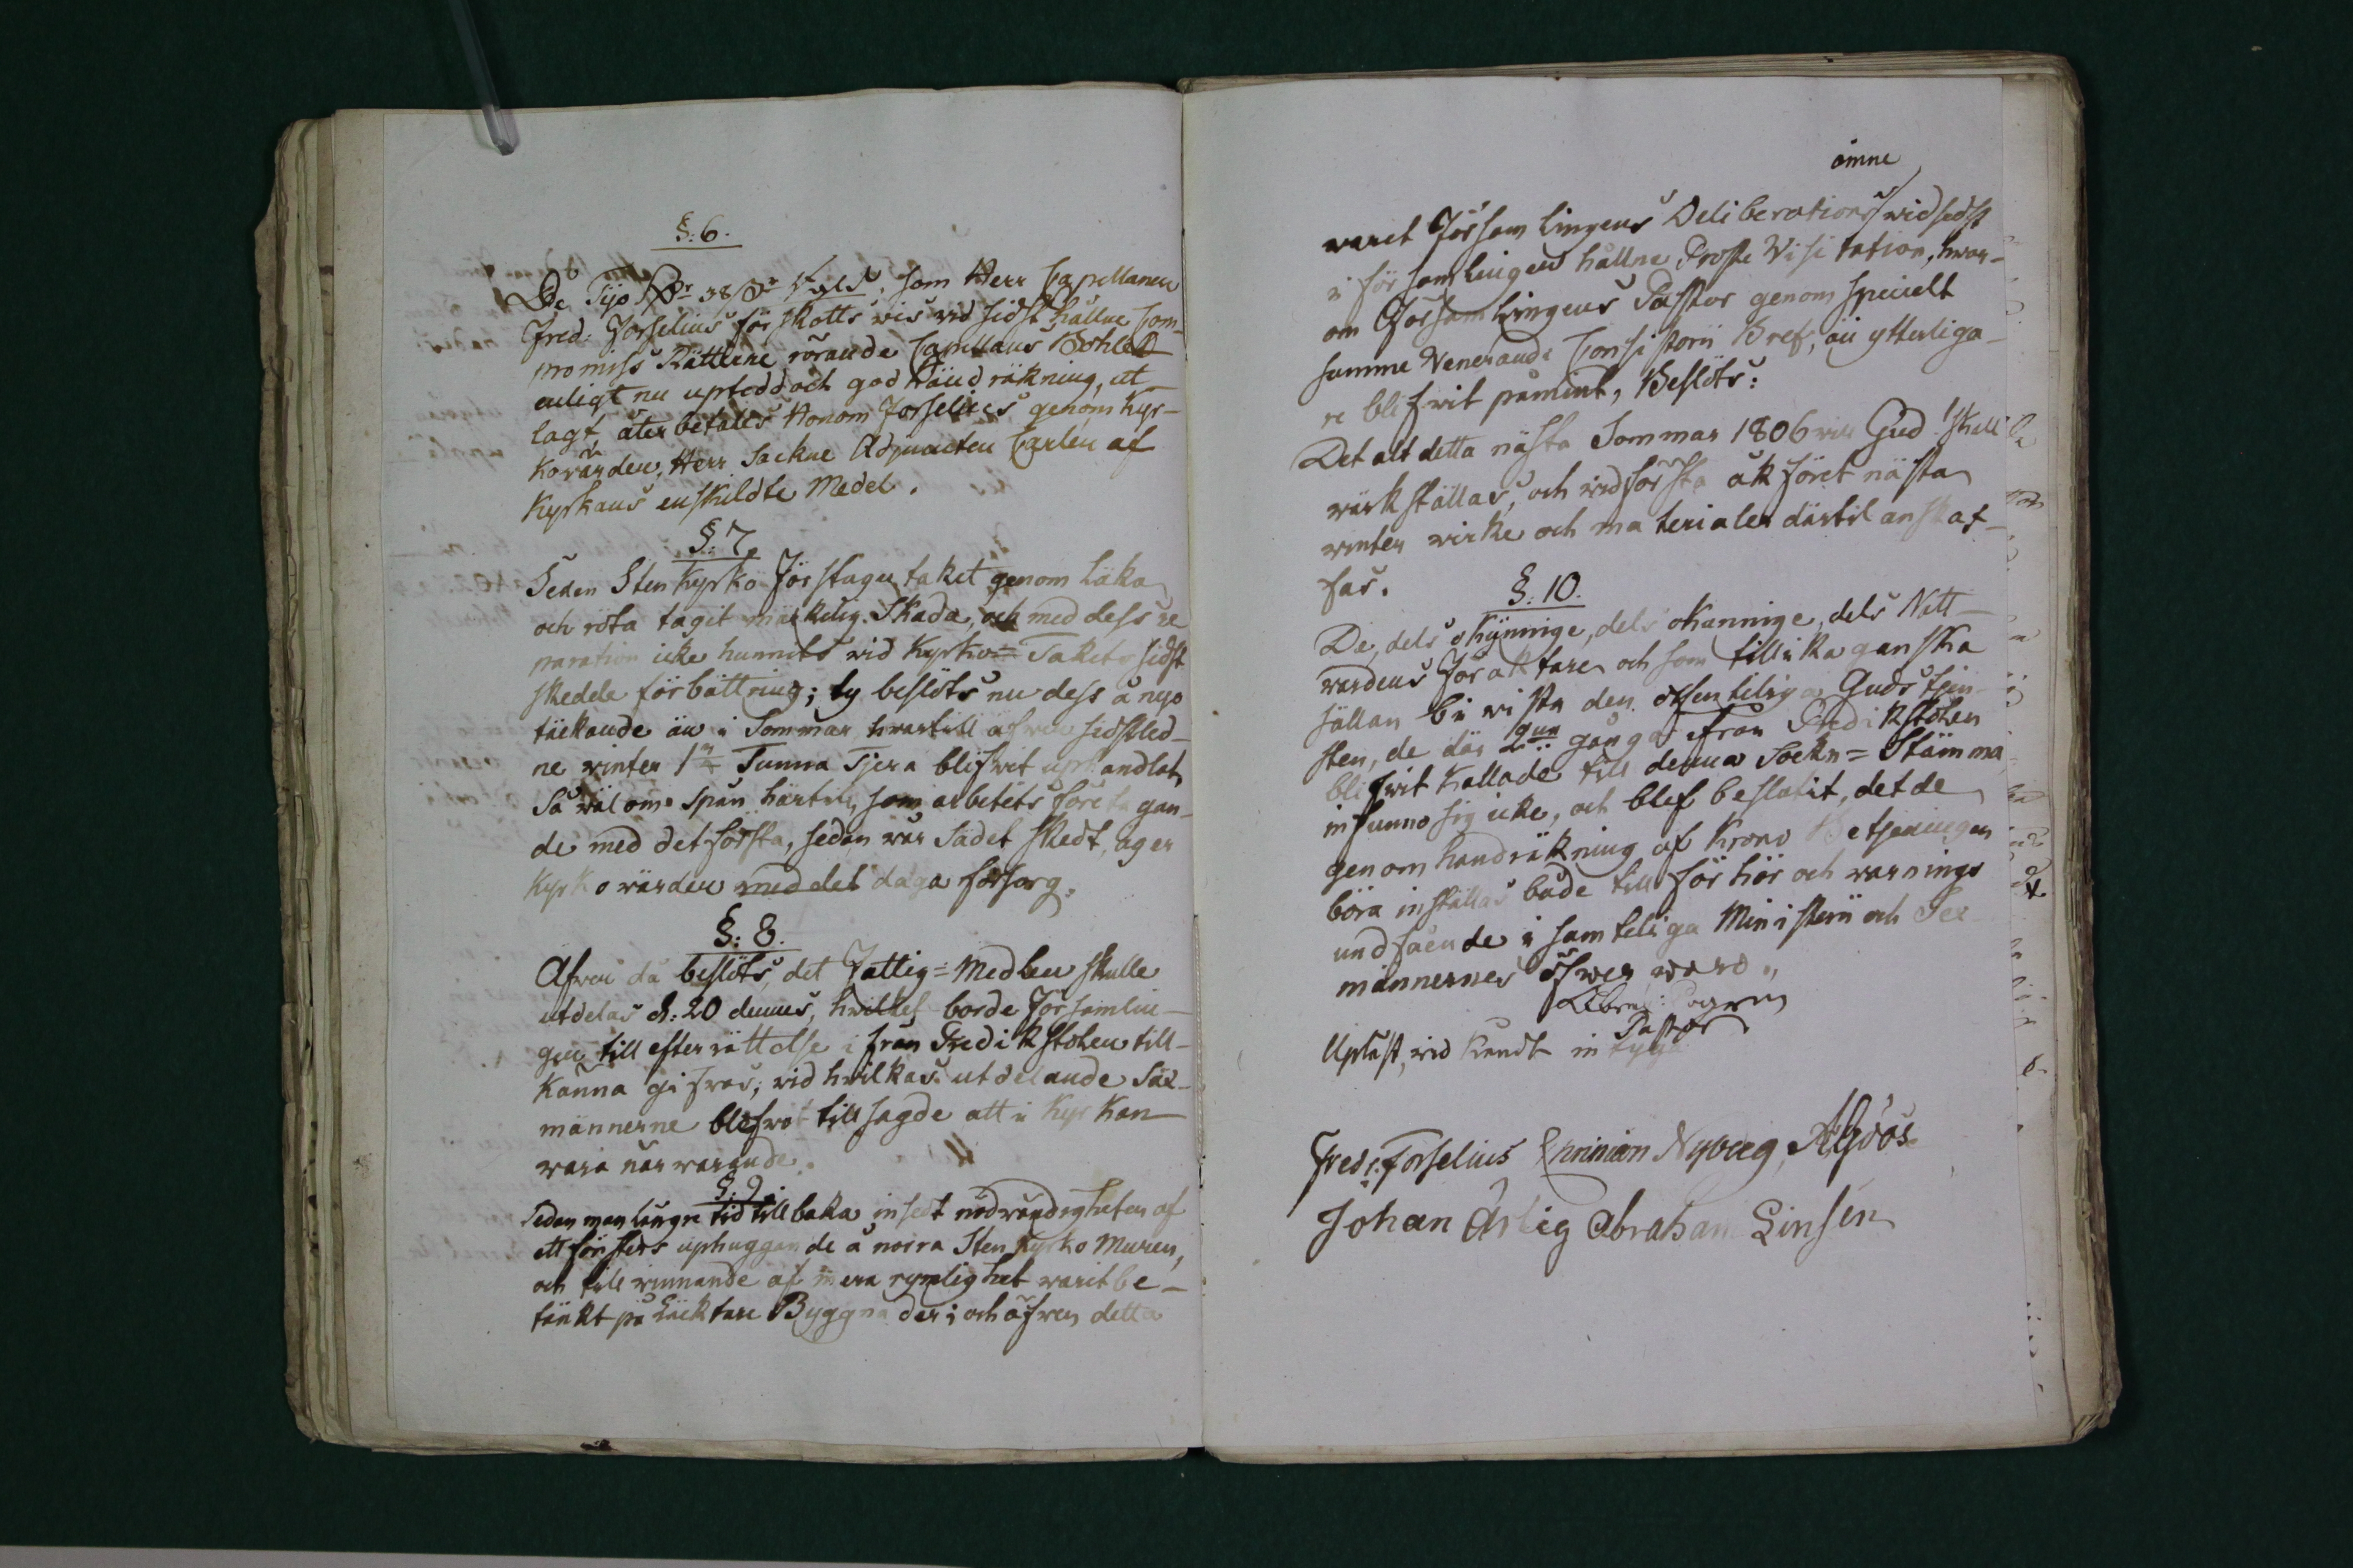 §. 6.
De Tijo som Herr Capellanen
Fred: Forselius förskotts wis wid sidst hållne Com-
promiss Rättene rörande Capellans Bohlet
enligt nu uptedd och godkänd räkning, ut-
lagt, återbetales Honom Forselius genom Kyr-
kowärden, Herr Sockne Adjuncten Carlen af
Kyrkans enskildte Medel.
§. 7.
Sedan Sten Kyrko Förstugu taket genom Läka
och röta tagit märkelig Skada, och med dess re
paration icke hunnits wid Kyrko= Takets sidst
skedde förbättring; ty beslöts nu dess å nyo
täckande än i Sommar hwartill äfwen sidstled-
ne winter 1 Tunna Tjera blifwit uphandlat,
Så wäl om Spån härtill, som arbetets företagan-
de med det första, sedan wår Sådet skedt, ager
Kyrkowärden med det daga försorg.
§. 8.
Afwen då beslöts, det Fattig=Medlen skulle
utdelas d: 20 dennes, hwilket borde Församlin-
gen till efterrättelse ifrån Predikstolen till-
känna gifwas; wid hwilkas utdelande Säx-
männerne blefwo tillsagde att i Kyrkan
wara närwarande.
§. 9.
Sedan man längre tid tillbaka insedt nödwändigheten af
ett fönsters uphuggande å norra Sten Kyrko Muren,
och till winnande af mera rymlighet warit be-
tänkt på Läcktare Byggnader; och äfwen detta
ämne
warit Församlingens Deliberations wid sidst
i församlingen hållne Proste Visitation, hwar-
om Församlingens Pastor genom specielt
samme Venerande Consistorii Bref, än ytterliga-
re blifwit påmint, Beslöts:
Det alt detta nästa Sommar 1806 will Gud! skall
wärkställas, och wid första åkföret nästa
winter wirke och materialer därtil anskaf-
fas.
§. 10.
De, dels okynnige, dels okunnige, dels Natt-
wardens Föraktare och som tillika ganska
sällan bewista den offenteliga Guds tjen-
sten, de där 2 gånger ifrån Predikstolen
blifwit kallade till denna Sockn=Stämma
infunno sig icke, och blef beslutit, det de
genom handräkning af Krono Betjeningen
böra inställas både till förhör och warnings
undfående i samteliga Ministerii och Sex
männernes öfwerwaro.
Pastor
Upläst, wid kändt intyga
Fredr: Forselius Nyberg,
Johan Ärlig Abraham Linsén